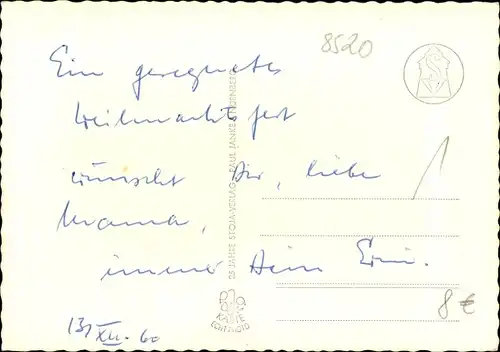 8520
Ein gesegnetes
Weihnachtsfest
wünscht Dir, liebe
Mama,
immer Dein Erni.
13. XII. 60
25 JAHRE STOJA-VERLAG PAUL JANKE NÜRNBERG
8 €